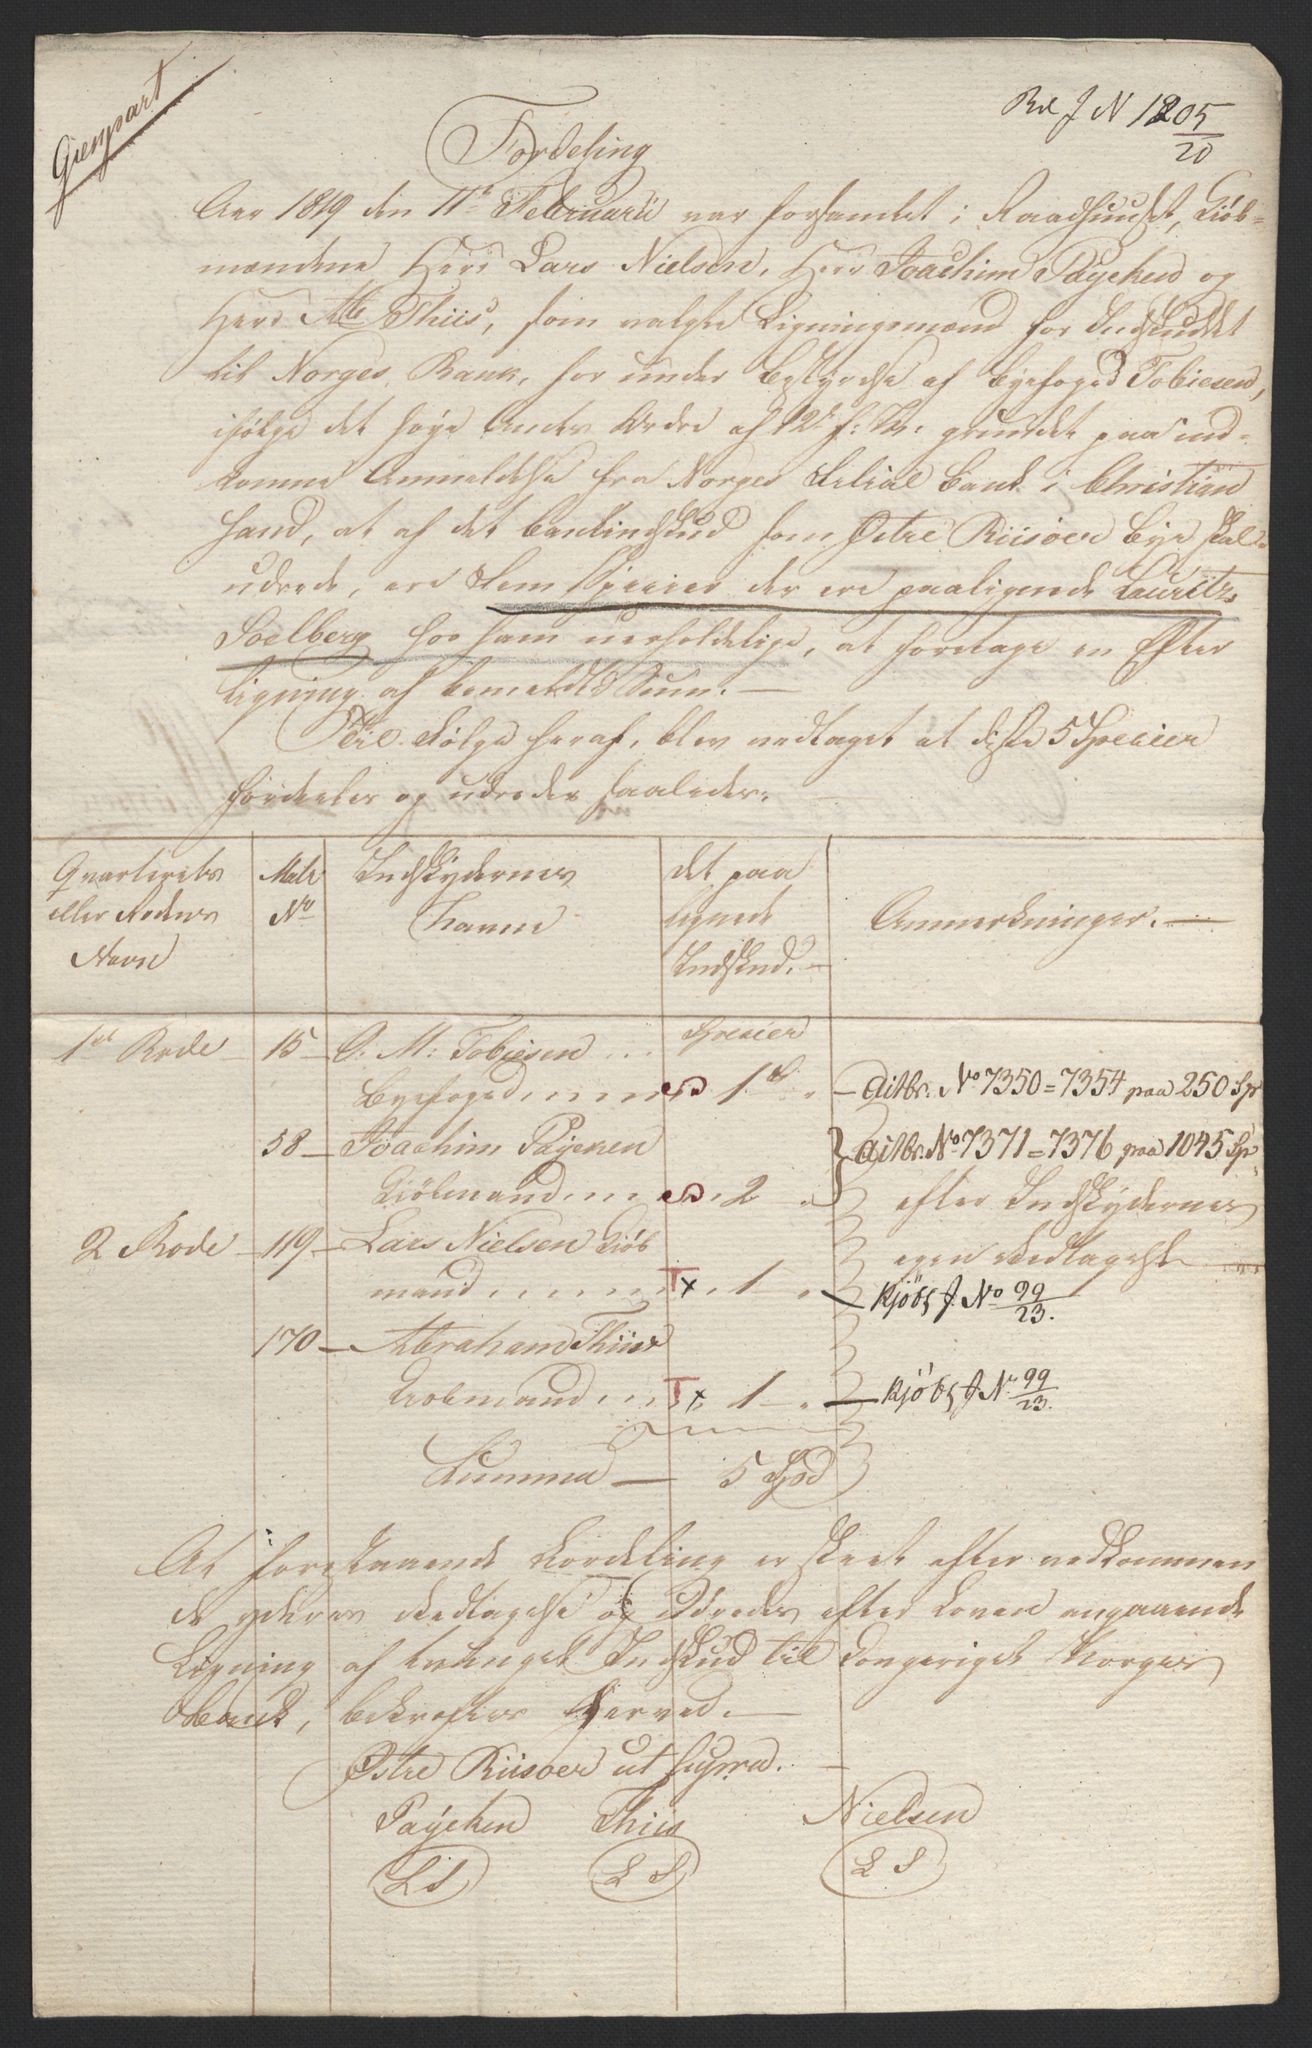 Gienpart
Rd J N 1205/20
Fordeling
Aar 1819 den 11te Februarii var forsamlet i Raadhuuset, Kiøb-
mændene Herr Lars Nielsen, Herr Joachim Paycken og
Herr Abr Thiis, som valgte Ligningsmænd for Indskuddet
til Norges Bank, for under Bestyrelse af Byefoged Tobiesen,
ifølge det høye Amts Ordre af 12te f: M: grundet paa ind-
komne Anmeldelse fra Norges Filial Bank i Christian
sand, at af det Bankindskud som Østre Riisøer Bye skal
udrede, ere Fem Specier der ere paalignede Lauritz
Soelberg hos ham uerholdelige, at foretage en Efter
Ligning af bemeldte Sum. —
Til Følge heraf, blev vedtaget at disse 5 Specier
fordeeles og udredes saaledes. —
Quarterets
eller Rodens
Navn
Matr
No
Indskydernes
Navne
det paa
lignede
Indskud. —
Anmærkninger. —
Specier
1ste Rode — 15 — O. M: Tobiesen ...
Byefoged ..... 1 „ — Qvitbr. No 7350 = 7354 paa 250 Sp
58 — Joachim Paycken } Qvitbr. No 7371 = 7376 paa 1045 Sp.
Kiøbmand ..... 2 „ efter Indskydernes
2 Rode — 119 — Lars Nielsen Kiøb egen Vedtagelse
mand ..... T x 1 „ — Kjøbs J. No 99/23.
170 — Abraham Thiis
Kiøbmand ... T x 1 „ — Kjøbs J. N. 99/23.
Summa — 5 Spd
At forestaaende Fordeling er skeet efter vedkommen
de yderes Vedtagelse og udredes efter Loven angaaende
Ligning af tvunget Indskud til Kongeriget Norges
Bank, bekræftes herved. —
Østre Riisøer ut supra. —
Paycken Thiis Nielsen
LS LS LS